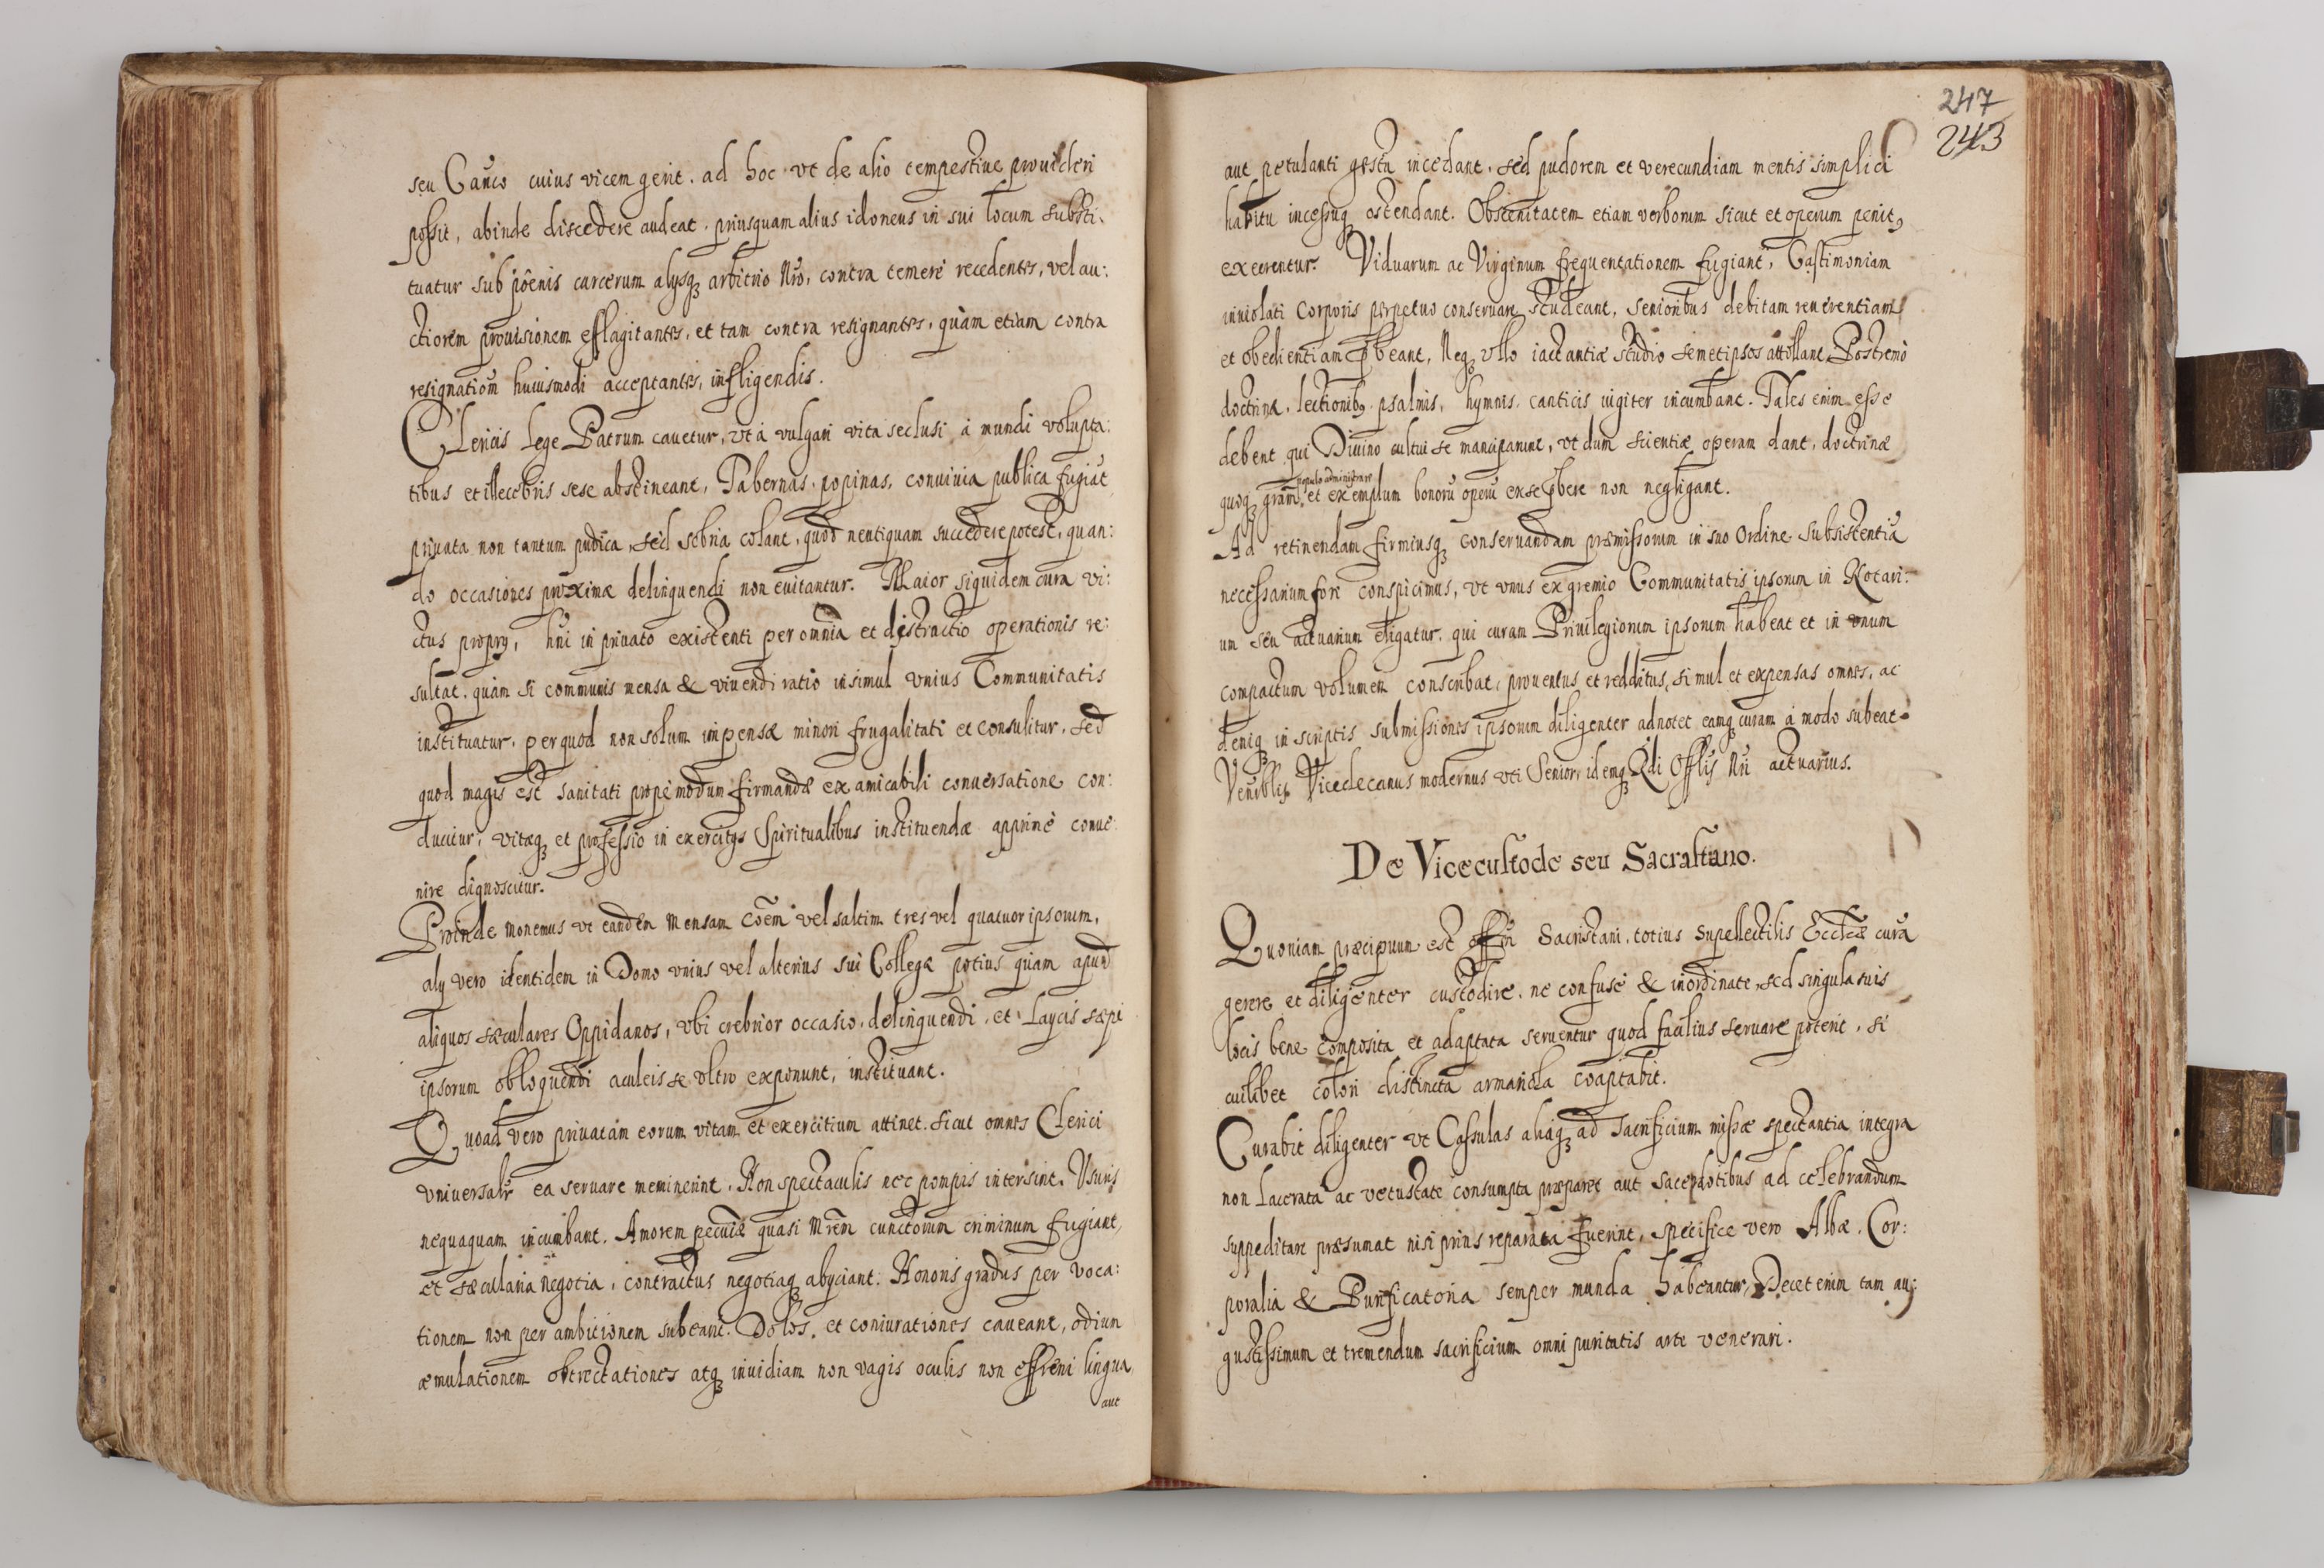 seu Canco cuius vicem gerit. ad hoc vt de alio tempestiue prouideri
possit, abinde discedere audeat. priusquam alius idoneus in sui locum substi:
tuatur sub poenis carcerum alysq; arbitrio Nro, contra temerè recedentes, vel au:
ctiorem prouisionem efflagitantes, et tam contra resignantes, quàm etiam contra
resignatiom huiusmodi acceptantes, infligendis.
Clericis Lege Patrum cauetur, vt à vulgari vita seclusi à mundi volupta:
tibus et illecebris sese abstineant, Tabernas, popinas, conuiuia publica fugiāt
priuata non tantum pudica, sed sobria colant, quod neutiquam succedere potest, quan:
do occasiones proximæ delinquendi non euitantur. Maior siquidem cura vi:
ctus propry, hui in priuato existenti per omnia et distractio operationis re:
sultat, quàm si communis mensa & viuendi ratio insimul vnius Communitatis
instituatur, per quod non solum impensæ minori frugalitati et consulitur, sed
quod magis est sanitati propemodum firmandæ ex amicabili conuersatione con:
ducitur, vitæq; et professio in exercitys Spiritualibus instituendæ apprimè conue
nire dignoscitur.
Proinde monemus vt eandem Mensam cōem vel saltim tres vel quatuor ipsorum,
aly vero identidem in Domo vnius vel alterius sui Collegæ potius quàm apund
aliquos sæculares Oppidanos, vbi crebrior occasio delinquendi, et Laycis sæpe
ipsorum obloquendi aculeis se vltro exponunt, instituant.
Quoad vero priuatam eorum vitam et exercitium attinet. sicut omnes Clerici
vniversalr ea seruare meminerint. Non spectaculis nec pompis intersint. Vsuris
nequaquam incumbant. Amorem pecuiæ quasi mrem cunctorum criminum fugiant,
et sæcularia negotia, contractus negotiaq; abyciant. Honoris gradus per voca:
tionem non per ambitionem subeant. Dolos, et coniurationes caueant, odium
æmulationem obtrectationes atq; inuidiam non vagis oculis non effreni lingua
aut
247
243
aut petulanti gestu incedant, sed pudorem et verecundiam mentis simplici
habitu incessuq; ostendant. Obscenitatem etiam verborum sicut et operum penit9
execrentur. Viduarum ac Virginum frequentationem fugiant, Castimoniam
inuiolati Corporis perpetuo conseruare studeant, Senioribus debitam reuerentiam
et obedientiam pbeant, Neq; vllo iactantiæ studio semetipsos attollant. Postremò
doctrinæ, lectionib9, psalmis, hymnis, canticis iugiter incumbant. Tales enim esse
debent qui Diuino cultui se manciparunt, vt dum scientiæ operam dant, doctrinæ
populo administrare
quoq; gram, et exemplum bonorū operū ex se pbere non negligant.
Ad retinendam firmiusq; conseruandam præmissorum in suo Ordine subsistentiā
necessarium fore conspicimus, vt vnus ex gremio Communitatis ipsorum in Notari:
um seu actuarium eligatur, qui curam Priuilegiorum ipsorum habeat et in vnum
compactum volumen conscribat, prouentus et redditus, simul et expensas omnes, ac
deniq; in scriptis submissiones ipsorum diligenter adnotet eamq; curam à modo subeat
Venlis Vicedecanus modernus vti Senior, idemq; Qdi Offlis Nri actuarius.
De Vicecustode seu Sacrastano.
Quoniam præcipuum est offm Sacristani, totius Supellectilis Eccleæ curā
gerere et diligenter custodire, ne confusè & inordinate, sed singula suis
locis bene composita et adaptata seruentur quod facilius seruare poterit, si
cuilibet colori distincta armariola coaptabit.
Curabit diligenter vt Cassulas aliaq; ad sacrificium missæ spectantia integra
non lacerata ac vetustate consumpta præparet aut Sacerdotibus ad celebrandum
suppeditare præsumat nisi prius reparata fuerint, specifice vero Albæ, Cor:
poralia & Purificatoria semper munda habeantur, Decet enim tam au:
gustissimum et tremendum sacrificium omni puritatis arte venerari.